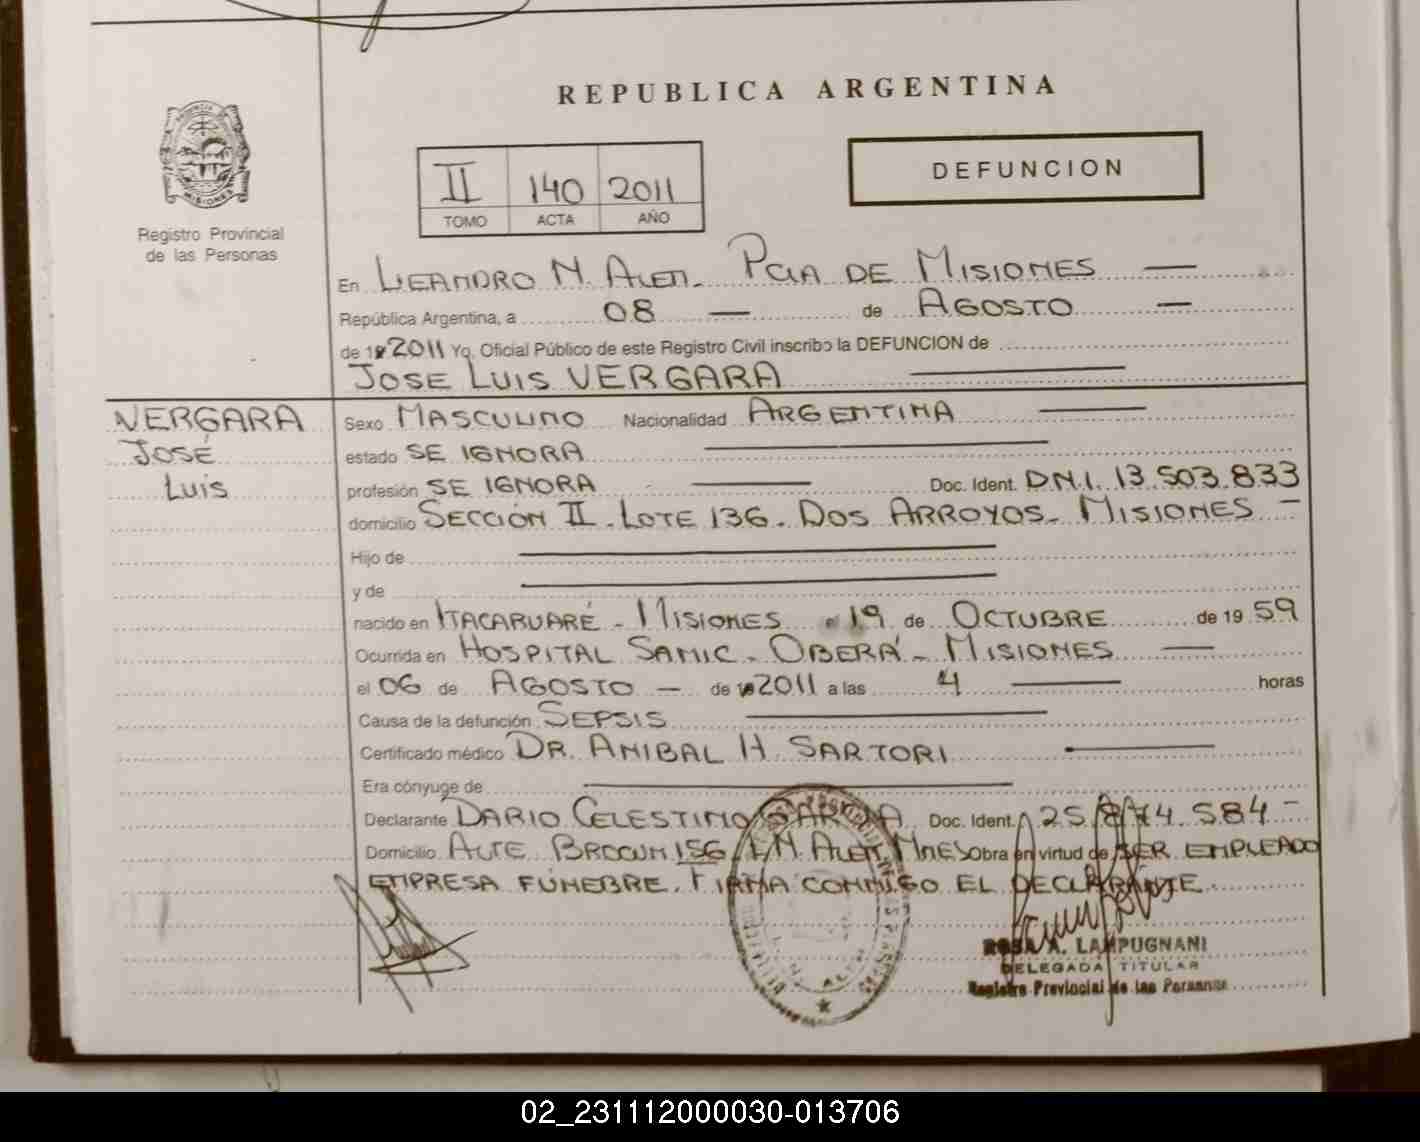 REPUBLICA ARGENTINA
II 140 2011
TOMO ACTA AÑO
DEFUNCION
Registro Provincial
de las Personas
En LEANDRO N. ALEM. PCIA DE MISIONES
República Argentina, a 08 de AGOSTO
de 2011 Yo, Oficial Público de este Registro Civil inscribo la DEFUNCION de
JOSE LUIS VERGARA
VERGARA
JOSÉ
LUIS
Sexo MASCULINO Nacionalidad ARGENTINA
estado SE IGNORA
profesión SE IGNORA Doc. Ident. D.N.I. 13.503.833
domicilio SECCIÓN II. LOTE 136. DOS ARROYOS. MISIONES
Hijo de
y de
nacido en ITACARUARÉ - MISIONES el 19 de OCTUBRE de 19 59
Ocurrida en HOSPITAL SAMIC. OBERÁ - MISIONES
el 06 de AGOSTO de 2011 a las 4 horas
Causa de la defunción SEPSIS
Certificado médico DR. ANIBAL H. SARTORI
Era cónyuge de
Declarante DARIO CELESTINO Doc. Ident. 584
Domicilio ALTE BROWN 156 L.N. ALEM MNES Obra en virtud de SER EMPLEADO
EMPRESA FÚNEBRE. FIRMA CONMIGO EL DECLARANTE
ROSA A. LAMPUGNANI
DELEGADA TITULAR
Registro Provincial de las Personas
02_231112000030-013706